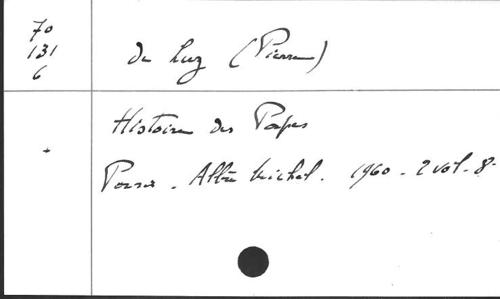 70
131
6
de Luz (Pierre)
Histoire des Papes
Paris. Albin Michel. 1960. 2 vol. 8-